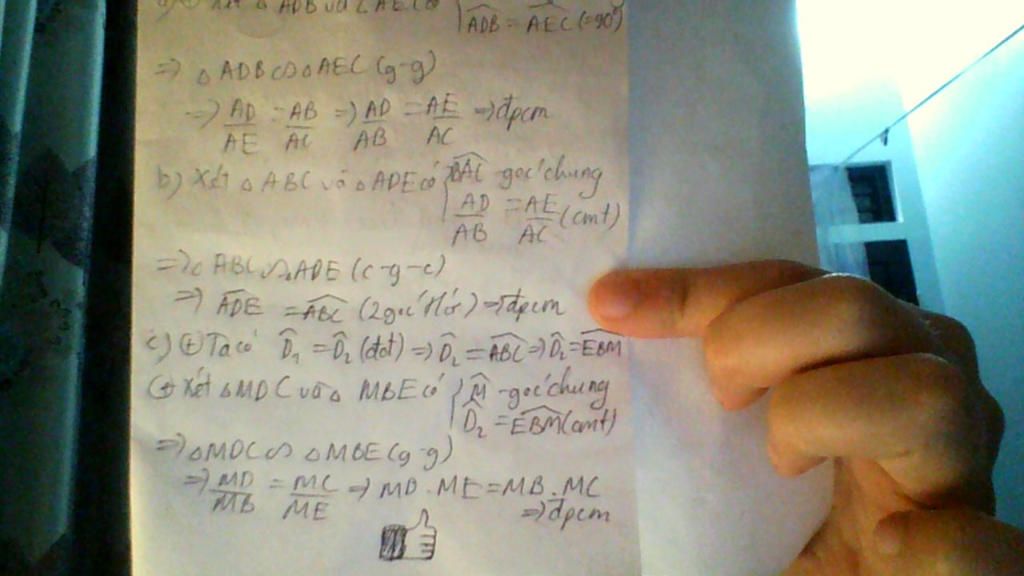 a) ⊕ Xét △ADB và △AEC có { ADB^ = AEC^ (=90°)
=> △ADB ∽ △AEC (g-g)
=> AD/AE = AB/AC => AD/AB = AE/AC => đpcm
b) Xét △ABC và △ADE có { BAC^ - góc chung
AD/AB = AE/AC (cmt)
=> △ABC ∽ △ADE (c-g-c)
=> ADE^ = ABC^ (2 góc t/ứ) => đpcm
c) ⊕ Ta có D̂₁ = D̂₂ (đđ) => D̂₂ = ABC^ => D̂₂ = EBM^
⊕ Xét △MDC và △MBE có { M̂ - góc chung
D̂₂ = EBM^ (cmt)
=> △MDC ∽ △MBE (g-g)
=> MD/MB = MC/ME => MD . ME = MB . MC
=> đpcm